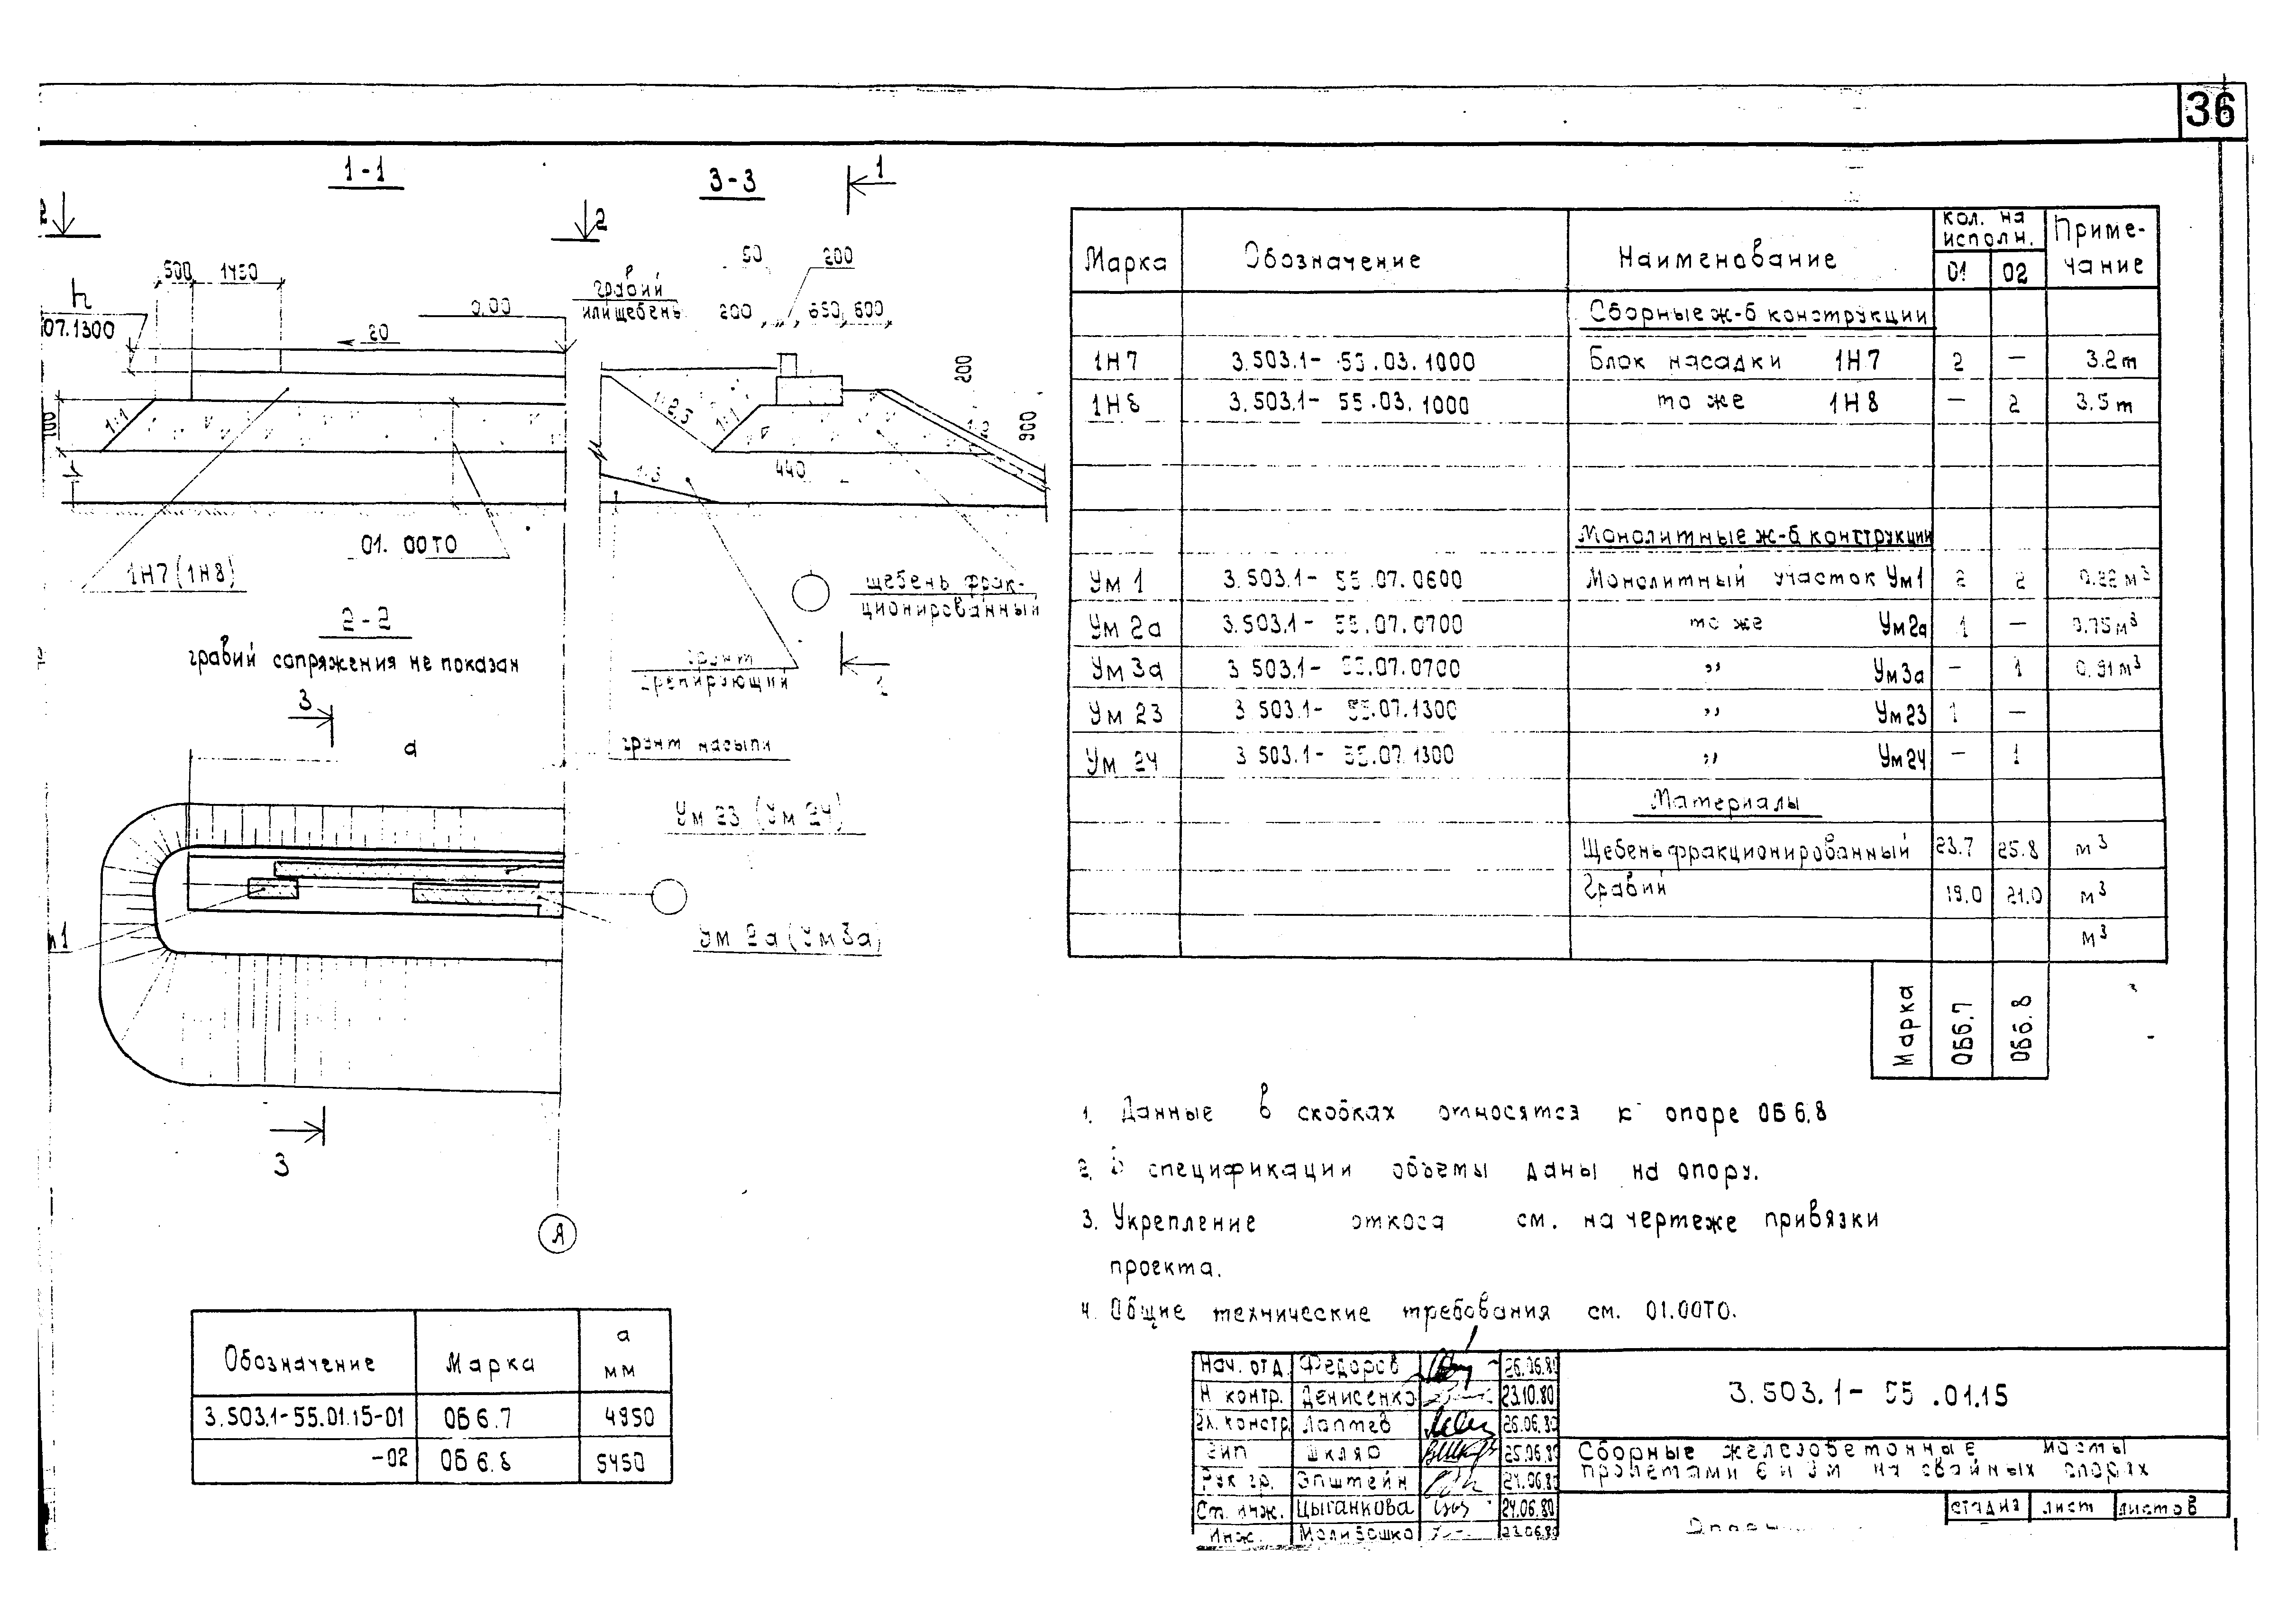 36
1-1
3-3
1
2
2
500
1450
50
200
h
07.1300
0.00
гравий
или щебень
200
650
600
20
200
900
1:1
1:2,5
1:1
1:2
440
1:5
01.00ТО
1Н7 (1Н8)
щебень фрак-
ционированный
2-2
гравий сопряжения не показан
грунт
дренирующий
1
3
а
грунт насыпи
Ум 23 (Ум 24)
Ум 2а (Ум 3а)
3
А
Марка Обозначение Наименование кол. на исполн. 01 02 Приме-чание
Сборные ж-б конструкции
1Н7 3.503.1- 55.03.1000 Блок насадки 1Н7 2 — 3.2т
1Н8 3.503.1- 55.03.1000 то же 1Н8 — 2 3.5т
Монолитные ж-б конструкции
Ум 1 3.503.1- 55.07.0600 Монолитный участок Ум1 2 2 0.22 м³
Ум 2а 3.503.1- 55.07.0700 то же Ум2а 1 — 0.75 м³
Ум 3а 3.503.1- 55.07.0700 " Ум3а — 1 0.91 м³
Ум 23 3.503.1- 55.07.1300 " Ум23 1 —
Ум 24 3.503.1- 55.07.1300 " Ум24 — 1
Материалы
Щебень фракционированный 23.7 25.8 м³
Гравий 19.0 21.0 м³
м³
Марка ОБ6.7 ОБ6.8
1. Данные в скобках относятся к опоре ОБ 6.8
2. В спецификации объемы даны на опору.
3. Укрепление откоса см. на чертеже привязки
проекта.
4. Общие технические требования см. 01.00ТО.
Обозначение Марка а мм
3.503.1-55.01.15-01 ОБ 6.7 4950
-02 ОБ 6.8 5450
Нач. отд. Федоров 26.06.80
Н контр. Денисенко 23.10.80
Гл. констр. Лаптев 26.06.80
Гип Шкляр 25.06.80
Рук гр. Эпштейн 24.06.80
Ст. инж. Цыганкова 24.06.80
Инж. 23.06.80
3.503.1- 55.01.15
Сборные железобетонные мосты
пролетами 6 и 9м на свайных опорах
стадия лист листов